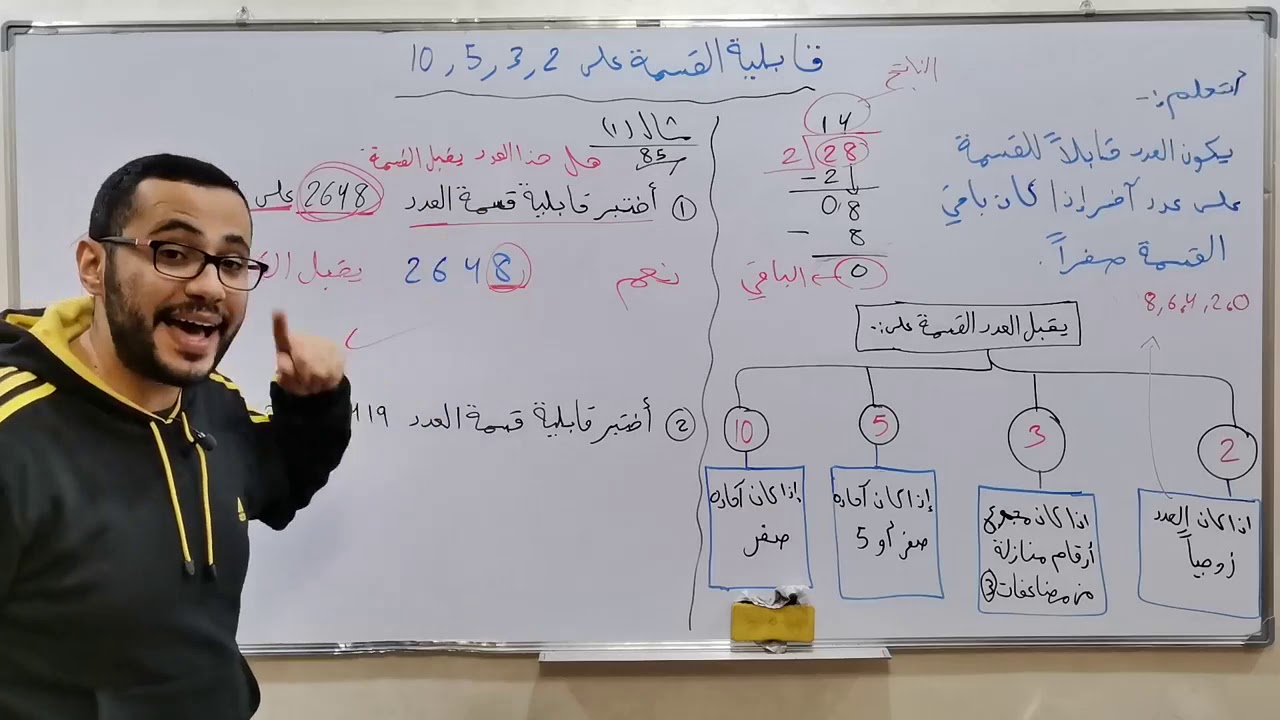 قابلية القسمة على 2 , 3 , 5 , 10
أتعلم :-
يكون العدد قابلاً للقسمة
على عدد آخر إذا كان باقي
القسمة صفراً .
8 , 6 , 4 , 2 , 0
الناتج
14
2 28
- 2
08
- 8
0 ← الباقي
يقبل العدد القسمة على :-
2
اذا كان العدد
زوجياً
3
اذا كان مجموع
أرقام منازلة
من مضاعفات 3
5
إذا كان آحاده
صفر أو 5
10
إذا كان آحاده
صفر
مثال (1)
85
هل هذا العدد يقبل القسمة
① أختبر قابلية قسمة العدد 2648 على
2648 نعم يقبل
② أختبر قابلية قسمة العدد